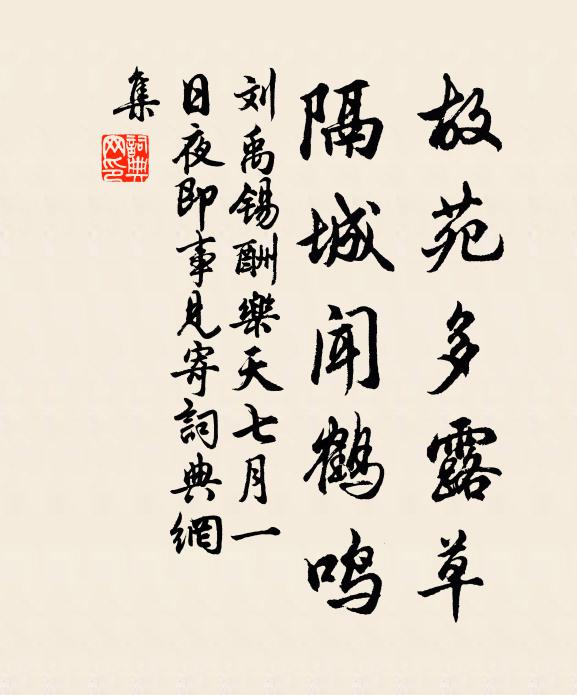 故苑多露草
隔城闻鹤鸣
刘禹锡酬樂天七月一
日夜即事見寄詞典網
集
詞典网印